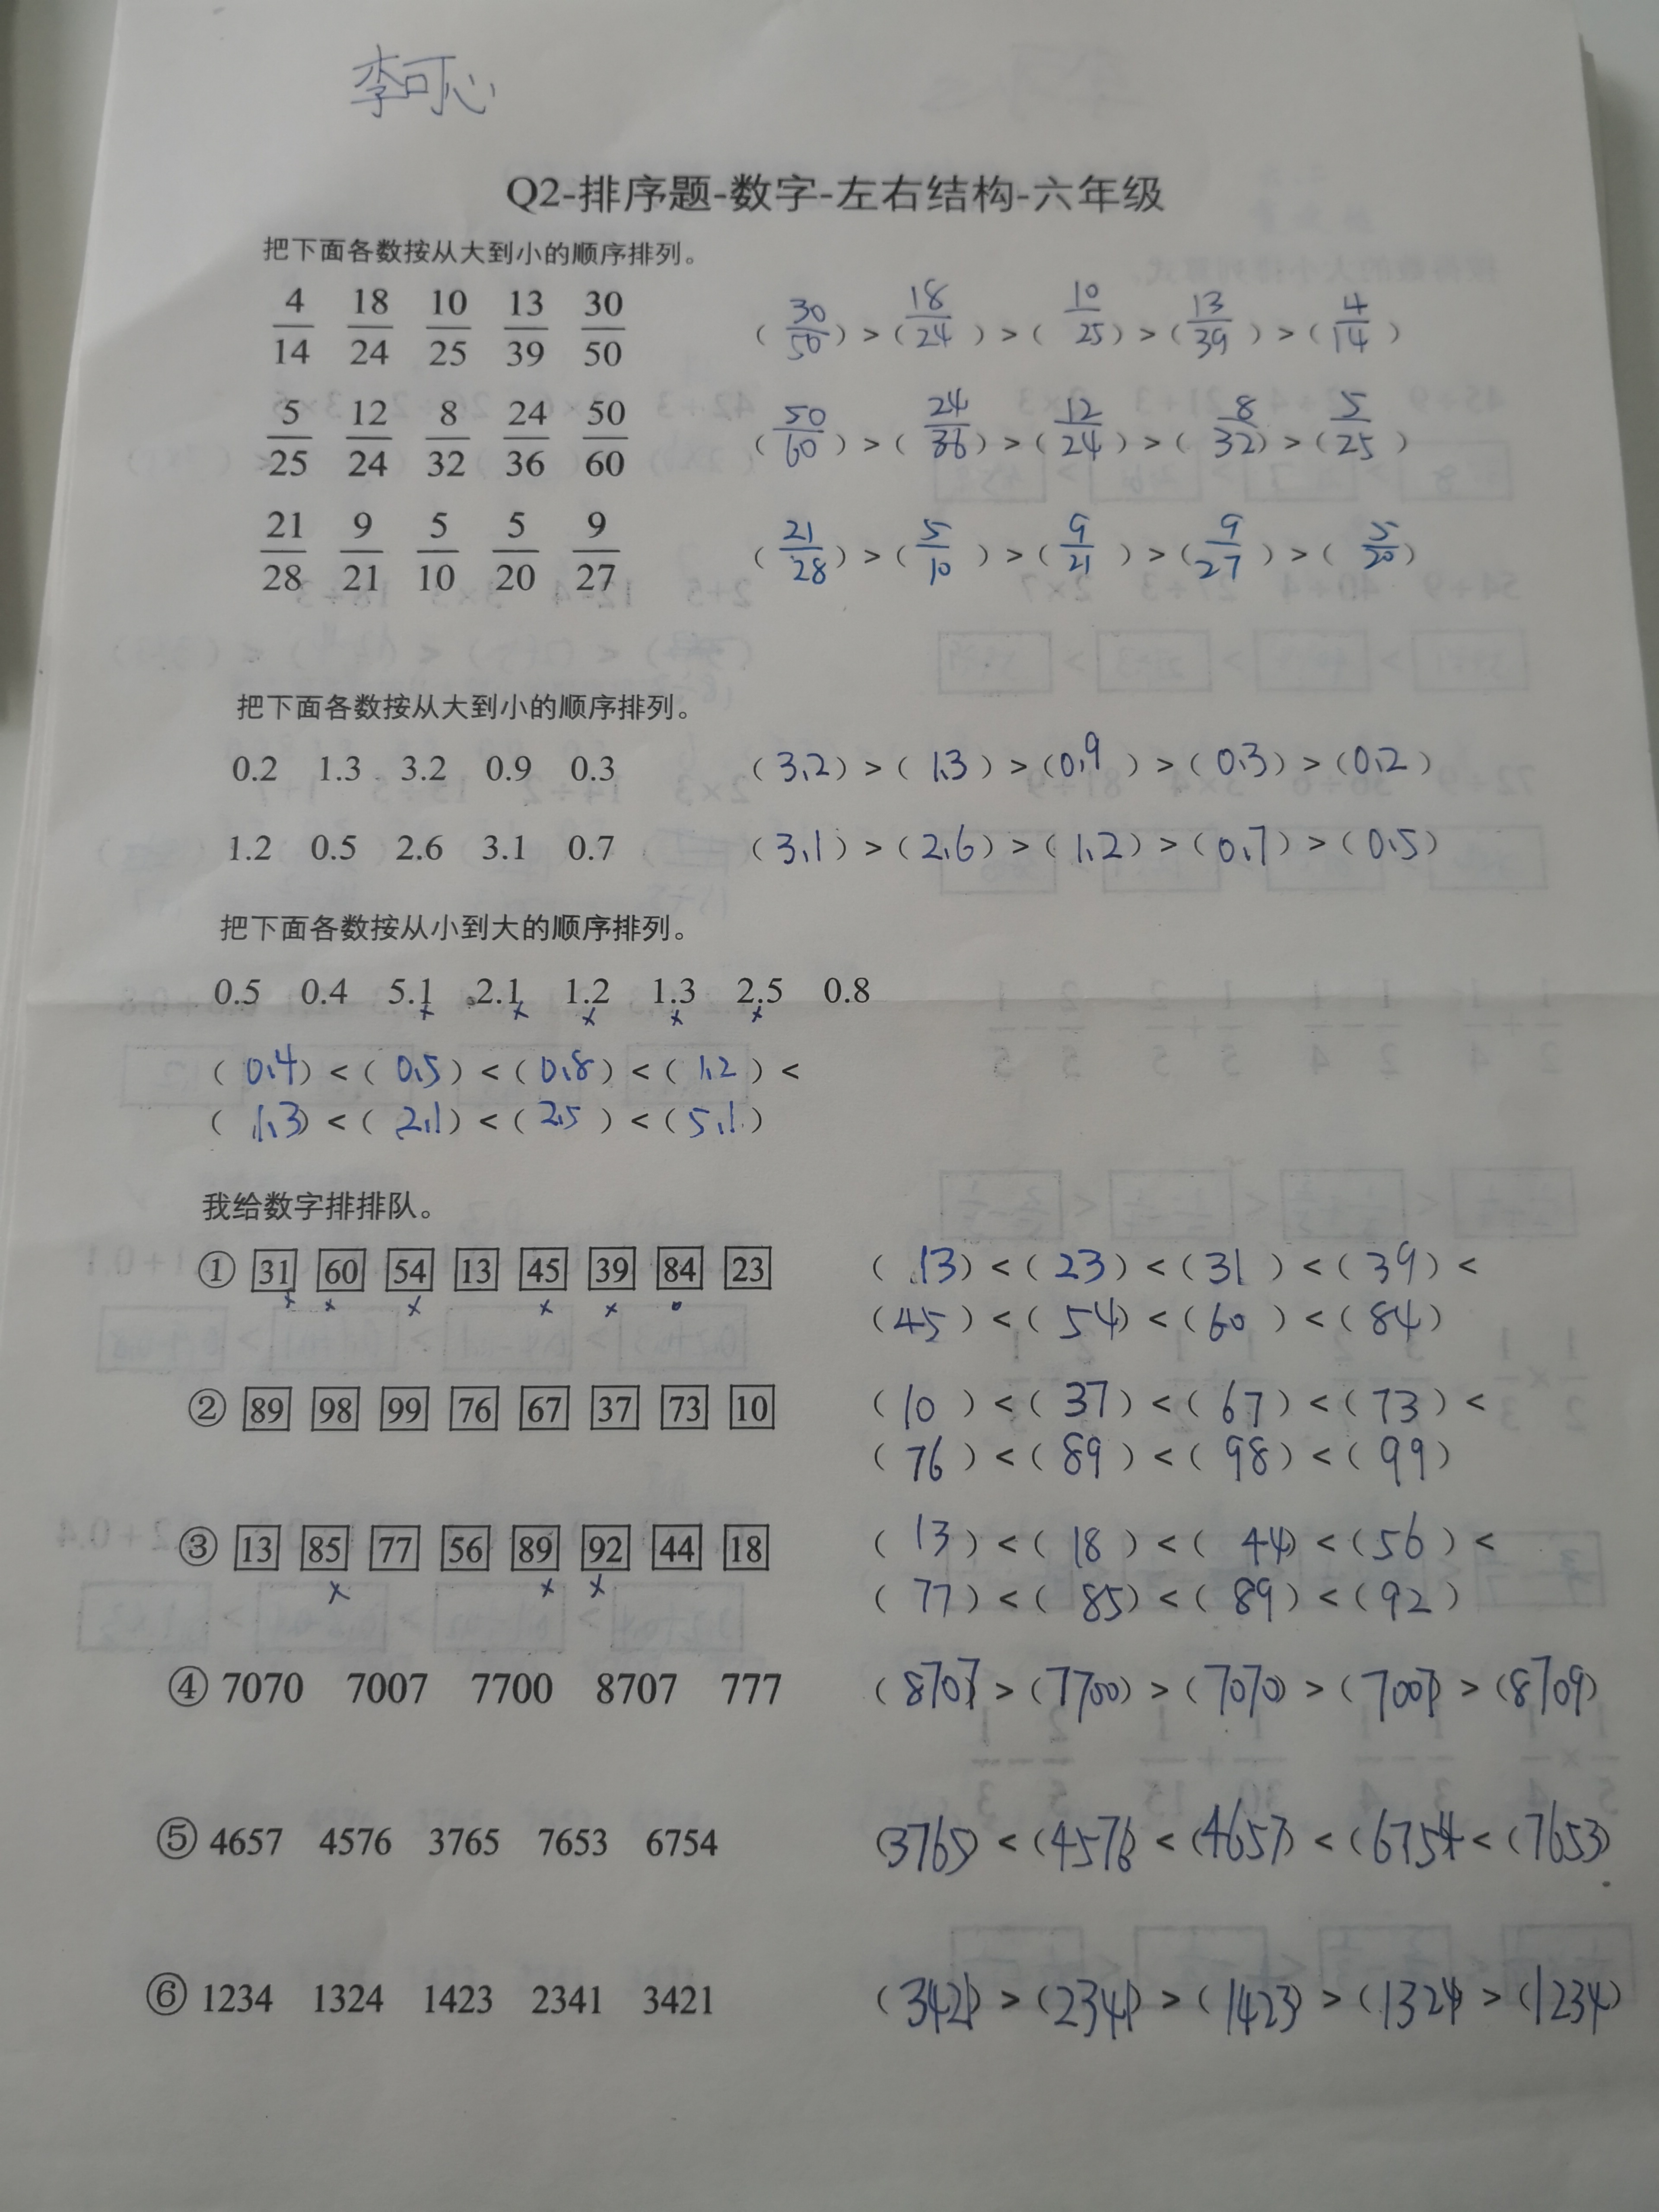 李可心
Q2-排序题-数字-左右结构-六年级
把下面各数按从大到小的顺序排列。
4/14 18/24 10/25 13/39 30/50 (30/50)>(18/24)>(10/25)>(13/39)>(4/14)
5/25 12/24 8/32 24/36 50/60 (50/60)>(24/36)>(12/24)>(8/32)>(5/25)
21/28 9/21 5/10 5/20 9/27 (21/28)>(5/10)>(9/21)>(9/27)>(5/20)
把下面各数按从大到小的顺序排列。
0.2 1.3 3.2 0.9 0.3 (3.2)>(1.3)>(0.9)>(0.3)>(0.2)
1.2 0.5 2.6 3.1 0.7 (3.1)>(2.6)>(1.2)>(0.7)>(0.5)
把下面各数按从小到大的顺序排列。
0.5 0.4 5.1 2.1 1.2 1.3 2.5 0.8
(0.4)<(0.5)<(0.8)<(1.2)<
(1.3)<(2.1)<(2.5)<(5.1)
我给数字排排队。
① 31 60 54 13 45 39 84 23 (13)<(23)<(31)<(39)<
(45)<(54)<(60)<(84)
② 89 98 99 76 67 37 73 10 (10)<(37)<(67)<(73)<
(76)<(89)<(98)<(99)
③ 13 85 77 56 89 92 44 18 (13)<(18)<(44)<(56)<
(77)<(85)<(89)<(92)
④ 7070 7007 7700 8707 777 (8707)>(7700)>(7070)>(7007)>(8709)
⑤ 4657 4576 3765 7653 6754 (3765)<(4576)<(4657)<(6754)<(7653)
⑥ 1234 1324 1423 2341 3421 (3421)>(2341)>(1423)>(1324)>(1234)